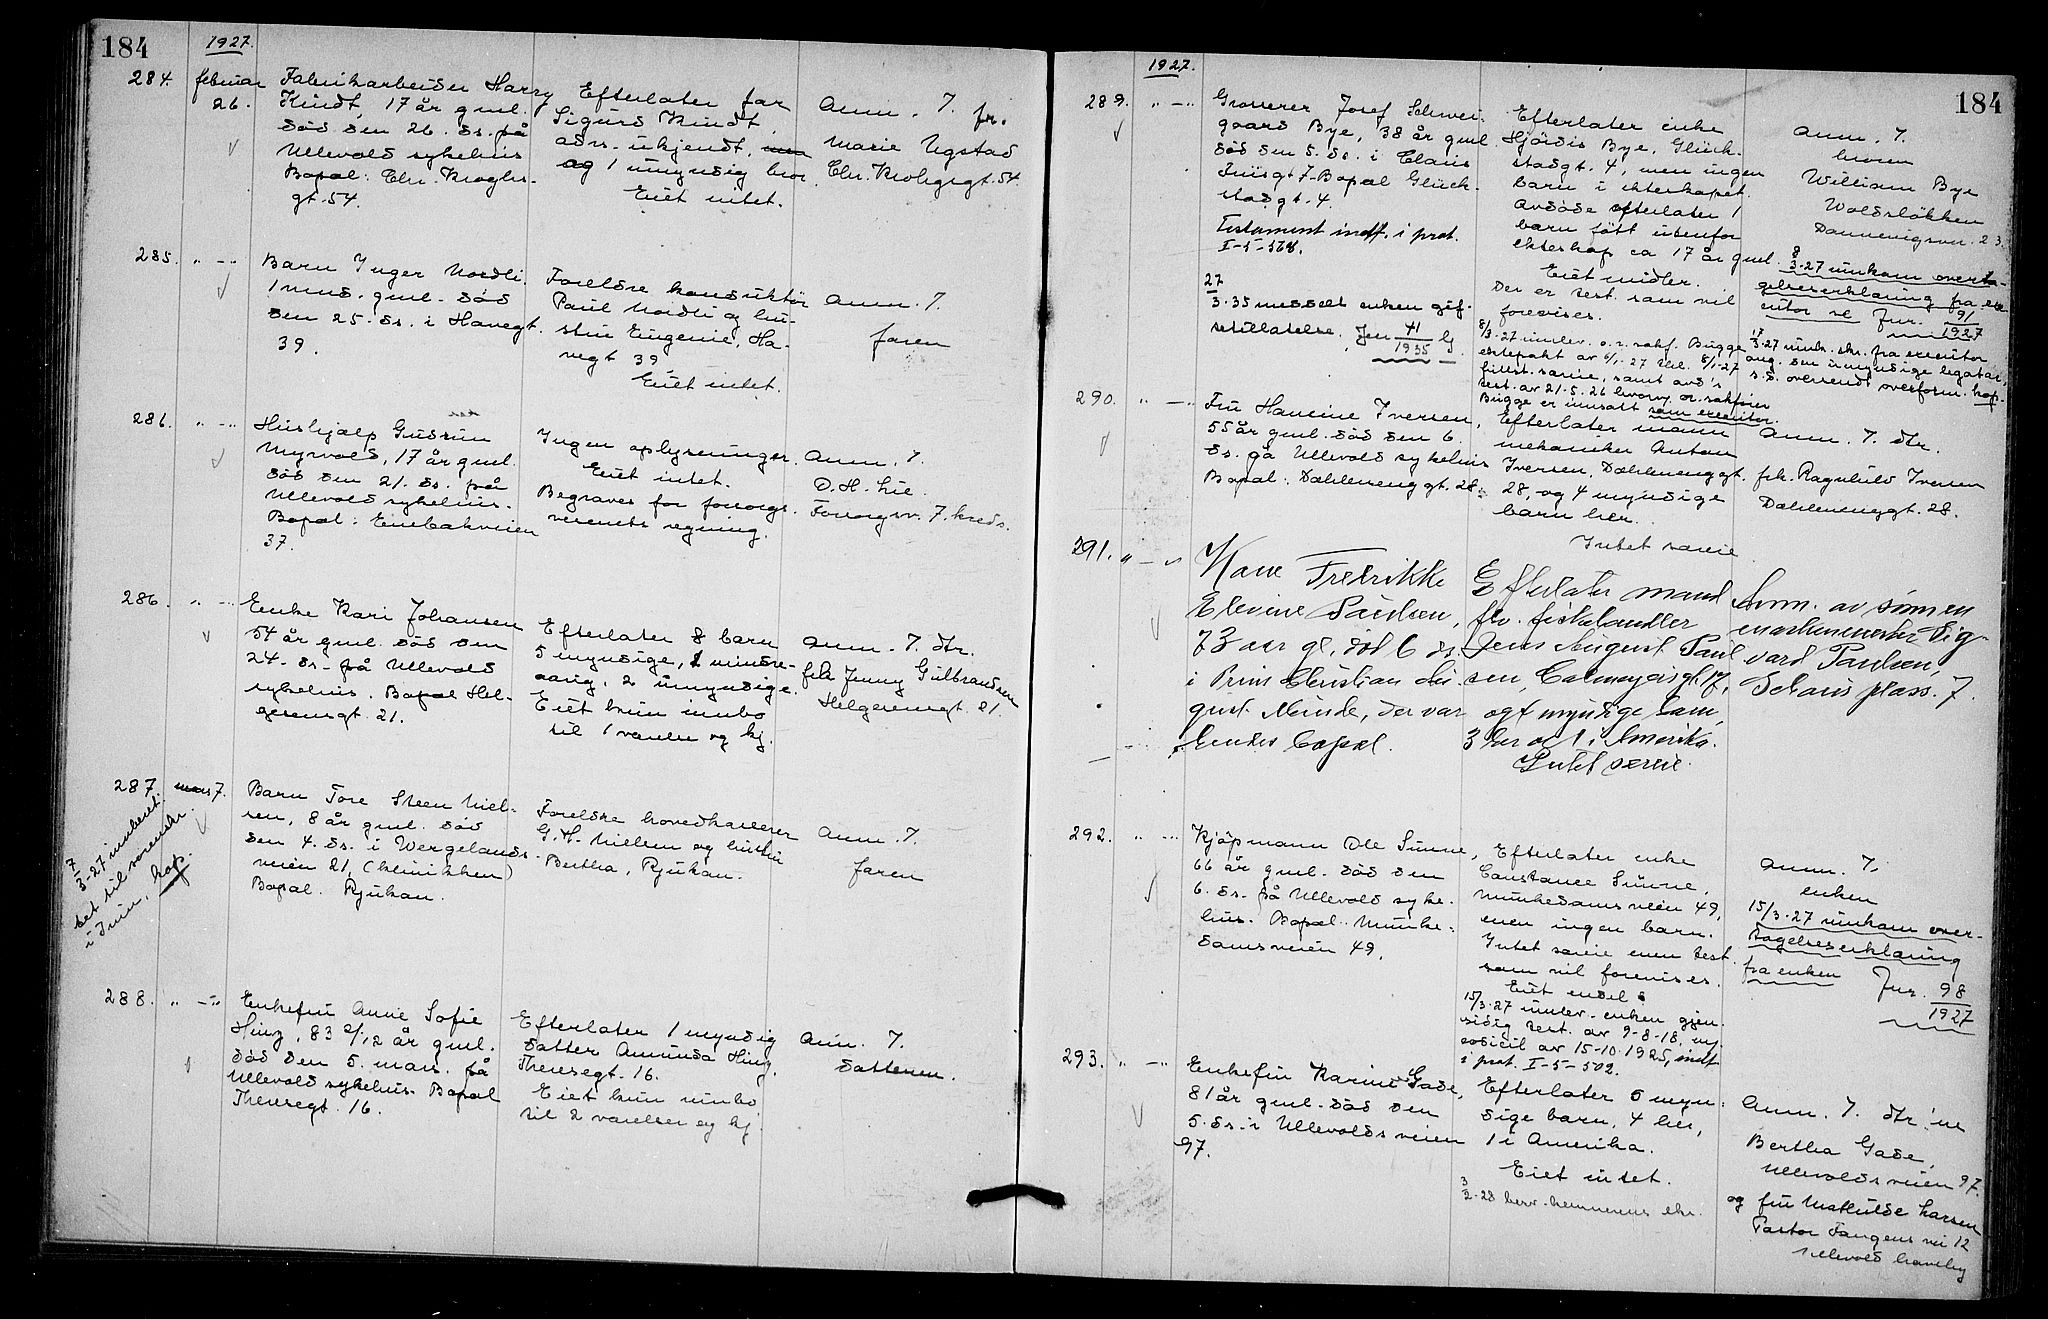 184
1927.
284. februar 26.
Fabrikarbeider Harry
Kindt, 17 år gml.
død den 26. ds. på
Ullevold sykehus
Bopæl: Chr. Kroghs-
gt. 54.
Efterlater far
Sigurd Kindt,
adrs. ukjendt,
og 1 umyndig bror
Eiet intet.
Anm. 7. fr.
Marie Ugstad
Chr. Krohgsgt. 54.
285. " - "
Barn Inger Nordli
1 mnd. gml. død
den 25. ds. i Havegt.
39.
Foreldre konduktör
Paul Nordli og hu-
stru Eugenie, Ha-
vegt 39,
Eiet intet.
Anm. 7.
faren
286. " - "
Hushjælp Gudrun
Myrvold, 17 år gml.
död den 21. ds. på
Ullevold sykehus.
Bopæl: Einbakveien
37.
Ingen oplysninger.
Eiet intet.
Begraves for forsorgs-
vesenets regning.
Anm. 7.
O. H. Lie.
Forsorgsv. 7. kreds.
286. " - "
Enke Kari Johansen
54 år gml. död den
24. ds. på Ullevold
sykehus. Bopæl Hel-
gesensgt. 21.
Efterlater 8 barn
5 myndige, 1 mindre-
aarig, 2 umyndige.
Eiet kun innbo
til 1 værelse og kj.
Anm. 7. dtr.
frk Jenny Gulbrandsen
Helgesensgt. 21.
287. mars 7.
7/3-27 innberet-
tet til sorenskr.
i Tinn, kop.
Barn Tore Steen Niel-
sen, 8 år gml. död
den 4. ds. i Wergelands-
veien 21, (klinikken)
Bopæl. Rjukan.
Foreldre hovedkasserer
G. H. Nielsen og hustru
Bertha, Rjukan.
Anm. 7.
faren
288. " - "
Enkefru Anne Sofie
Hinz, 83 2/12 år gml.
död den 5. mars. på
Ullevold sykehus. Bopæl
Theresegt. 16.
Efterlater 1 myndig
datter Amunda Hinz,
Theresegt. 16.
Eiet kun innbo
til 2 værelser og kj.
Anm. 7.
datteren.
184
1927.
289. " - "
Grosserer Josef Schwei-
gaard Bye, 38 år gml
död den 5. ds. i Claus
Riisgt 7. Bopæl Glück-
stadgt. 4.
Testament indf. i prot.
I-5-568.
27/3-35 meddelt enken gif-
tetillatelse. Jnr 41/1935
Efterlater enke
Hjördis Bye, Glück-
stadgt. 4, men ingen
barn i ekteskapet.
Avdöde efterlater 1
barn född utenfor
ekteskap ca 17 år gml.
Eiet midler.
Der er test. som vil
forevises.
8/3-27 innlev. o.r. sakf. Bugge
ektepakt av 6/1-27 thl. 8/1-27
fullst. særeie, samt avd's
test. av 21-5-26 hvorv. or. sakförer
Bugge er innsatt som executor.
Anm. 7.
broren
William Bye
Woldslökken
Dannevigsvn. 23.
8/3-27 innkom overta-
gelseserklæring fra exe-
cutor se Jnr. 91/1927
17/3-27 innk. skr. fra executor
ang. den umyndige legatar,
s.d. oversendt overform. kop.
290. " - "
Fru Hansine Iversen,
55 år gml. död den 6.
ds. på Ullevold sykehus
Bopæl: Dælenenggt. 28.
Efterlater mann
mekaniker Anton
Iversen, Dælenenggt.
28, og 4 myndige
barn her.
Intet særeie
Anm. 7. dtr.
frk. Ragnhild Iversen
Dælenenggt. 28.
291. " - "
Kone Fredrikke
Elevine Paulsen,
73 aar gl, død 6 ds.
i Prins Christian Au-
gust Minde, der var
hendes bopæl.
Efterlater mand
fhv. fiskehandler
Jens August Paul
sen, Calmeyersgt 17,
og 4 myndige barn,
3 her og 1 i Amerika.
Intet særeie.
Anm. av sønnen
maskinmester Sig-
vard Paulsen,
Schous plass. 7.
292. " - "
Kjöpmann Ole Sunne,
66 år gml. död den
6. ds. på Ullevold syke-
hus. Bopæl. Munke-
damsveien 49.
Efterlater enke
Constance Sunne,
Munkedamsveien 49,
men ingen barn.
Intet særeie men test.
som vil forevises.
Eiet endel
15/3-27 innlev. enken gjen-
sidig test. av 9-8-18, og
codicil av 15-10-1925, indf
i prot. I-5-502.
Anm. 7.
enken
15/3-27 innkom over-
tagelseserklæring
fra enken Jnr. 98/1927
293. " - "
Enkefru Karine Gade,
81 år gml. död den
5. ds. i Ullevoldsveien
97.
Efterlater 5 myn-
dige barn, 4 her,
1 i Amerika.
Eiet intet.
Anm. 7. dtr.'ne
Bertha Gade,
Ullevoldsveien 97.
og fru Mathilde Larsen
Pastor Fangens vei 12
Ullevold haveby